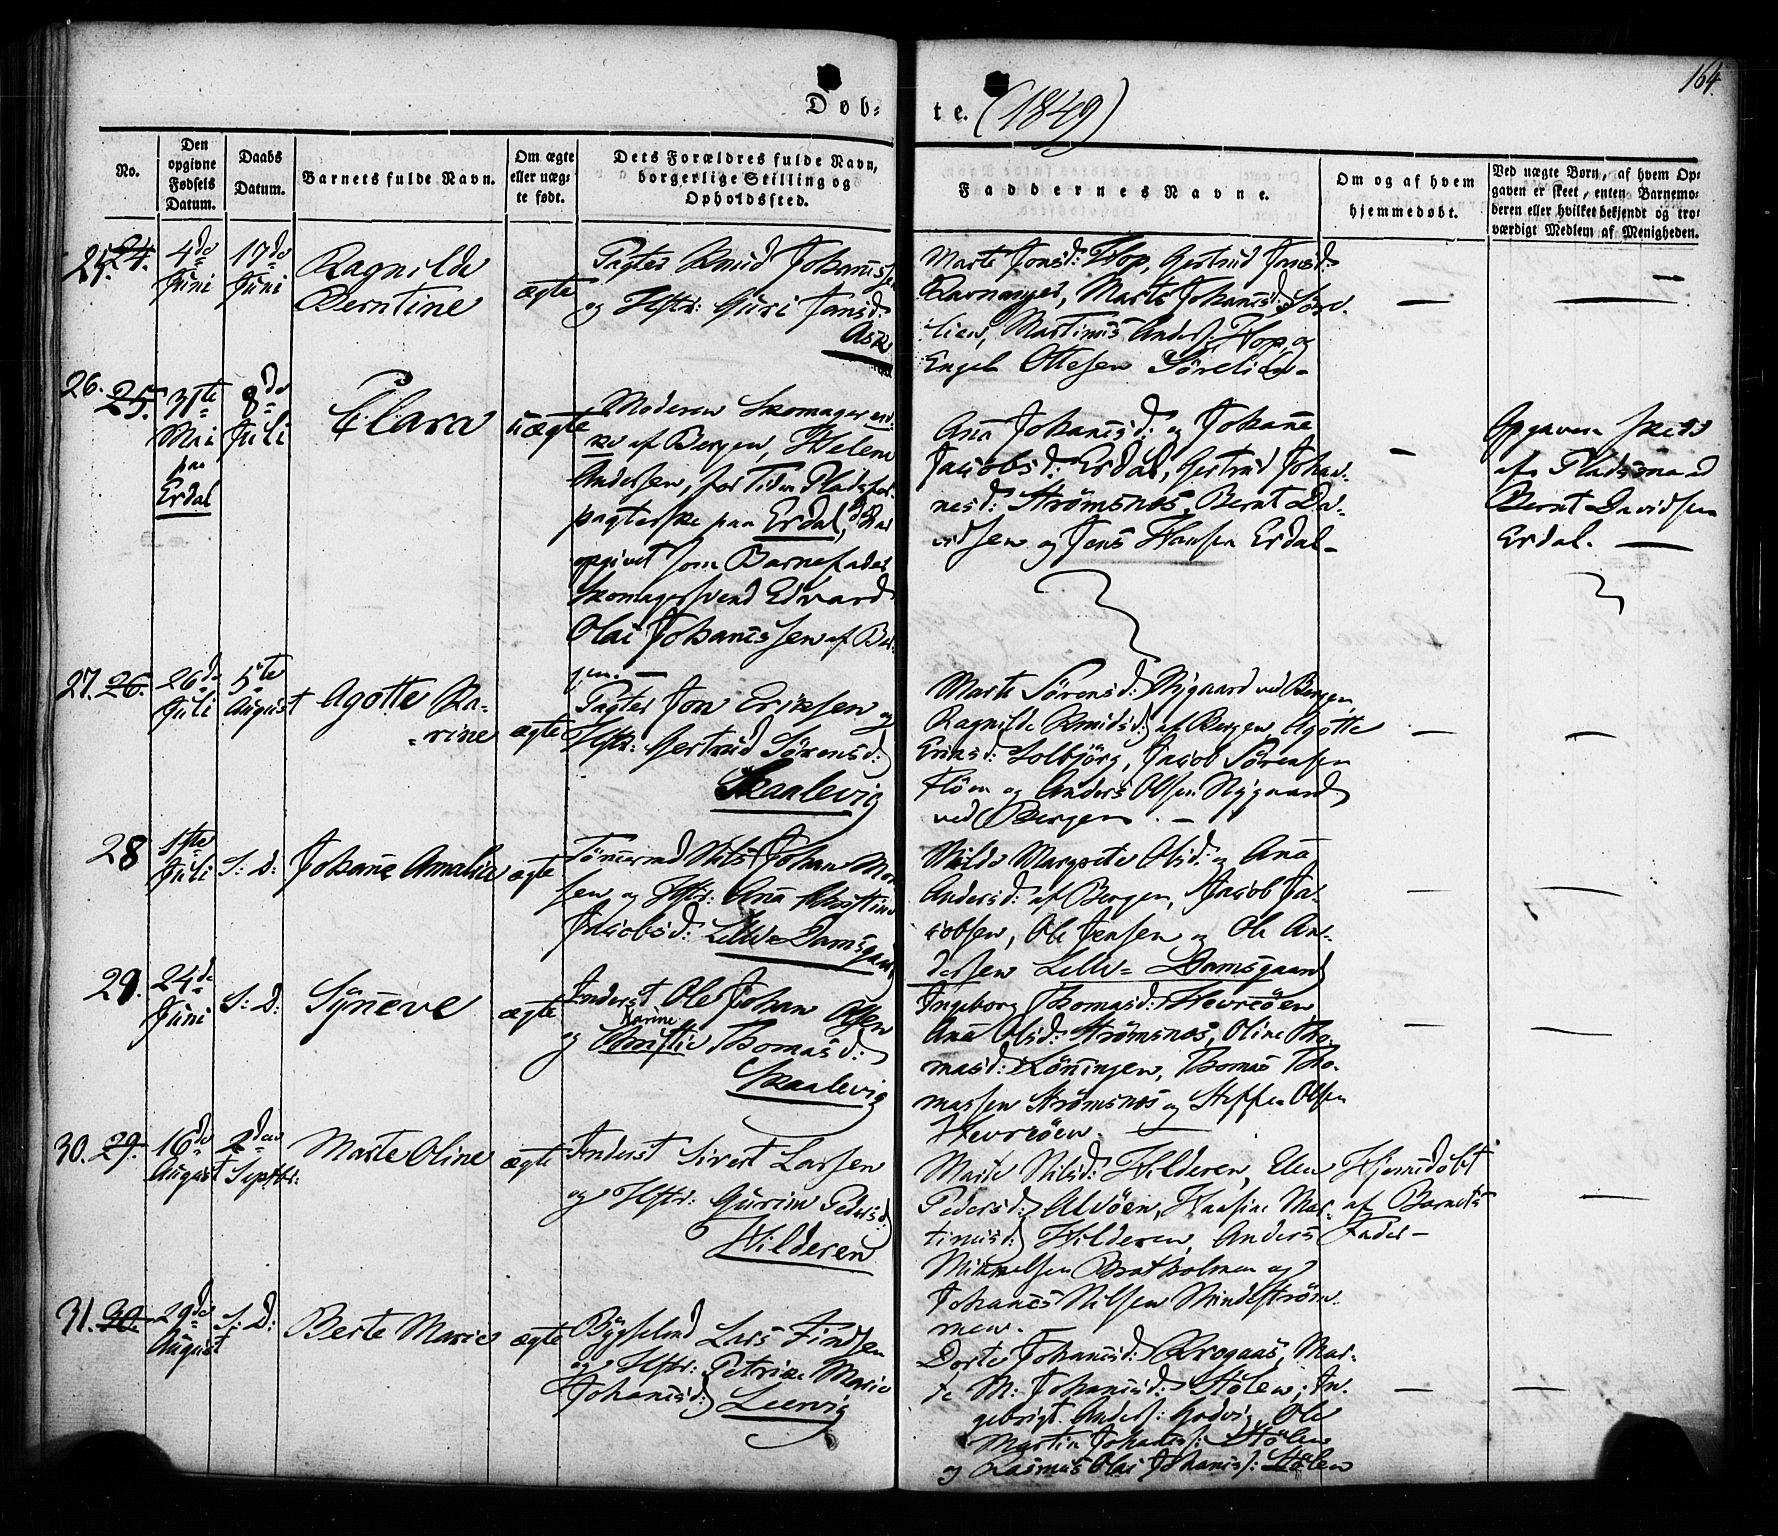 164.
Døb-
te. (1849)
No.
Den opgivne Fødsels Datum.
Daabs Datum.
Barnets fulde Navn.
Om ægte eller uægte født.
Dets Forældres fulde Navn, borgerlige Stilling og Opholdssted.
Faddernes Navne.
Om og af hvem hjemmedøbt.
Ved uægte Børn, af hvem Opgaven er skeet, enten Barnemoderen eller hvilket bekjendt og troværdigt Medlem af Menigheden.
25. 24.
4de Juni
17de Juni
Ragnilde
Berntine
ægte
Pagter Knud Johannessen
og Hstr: Guri Jansd:
Ask
Marte Jonsd: Hop, Gertrud Jansd:
Ravnanger, Marte Johansd: Søre-
lien, Martinus Anders: Hop, og
Engel Ottesen Sørelien -
—
—
26. 25.
31te Mai paa Erdal
8de Juli
Clara
uægte
Moderen Skomagerend-
ke af Bergen, Helene
Andersen, for Tiden Pladsfor-
pagterske paa Erdal, har
opgivet som Barnefader
Skomagersvend Edvard
Olai Johannessen af Ber-
gen. —
Ana Johannsd: og Johane
Jacobsd: Erdal, Gertrud Johan-
nesd: Strømsnes, Bernt Da-
vidsen og Jens Hansen Erdal -
—
Opgaven skeet
af Pladsmand
Bernt Davidsen
Erdal. —
27. 26.
26de Juli
5te August
Agotte Ka-
rine
ægte
Pagter Jon Eriksen og
Hstr: Gertrud Sørensd:
Skaalevig
Marte Sørensd: Nygaard ved Bergen,
Ragnilde Knudsd: af Bergen, Agotte
Eriksd: Solbjørg, Jacob Sørensen
Fløen og Anders Olsen Nygaard
ved Bergen. —
—
—
28
1ste Juli
S: D:
Johane Amalie
ægte
Tømmermd Nils Johan Mon-
sen og Hstr: Ana Christine
Jacobsd: Lille Damsgaard
Milde Margrete Olsd: og Ana
Andersd: af Bergen, Jacob Ja-
cobsen, Ole Jensen og Ole An-
dersen Lille = Damsgaard
—
—
29.
24de Juni
S: D:
Syneve
ægte
Inderst Ole Johan Olsen
Karine
og Christie Thomasd:
Skaalevig
Ingeborg Thomasd: Hevrøen,
Ana Olsd: Strømsnes, Oline Tho-
masd: Lønningen, Thomas Tho-
massen Strømsnes og Steffen Olsen
Hevrøen.
—
—
30. 29.
16de August
2den Septbr:
Marte Oline
ægte
Inderst Sivert Larsen
og Hstr: Gurine Pedersd:
Hilderen
Marte Nilsd: Hilderen, Elen
Pedersd: Alvøen, Hansine Mar-
tinusd: Hilderen, Anders
Mikkelsen Bratholmen og
Johannes Nilsen Mindeström-
men.
Hjemmedøbt
af Barnets
Fader -
—
31. 30.
29de August
S: D:
Berte Marie
ægte
Bygselmd Lars Findsen
og Hstr: Petrine Marie
Johannesd: Leervig
Dorte Johannesd: Krogaas, Mar-
te M: Johannesd: Stølen, In-
gebrigt Anders: Godvig, Ole
Martin Johannes: Stølen
og Rasmus Olai Johannes: Stølen
—
—